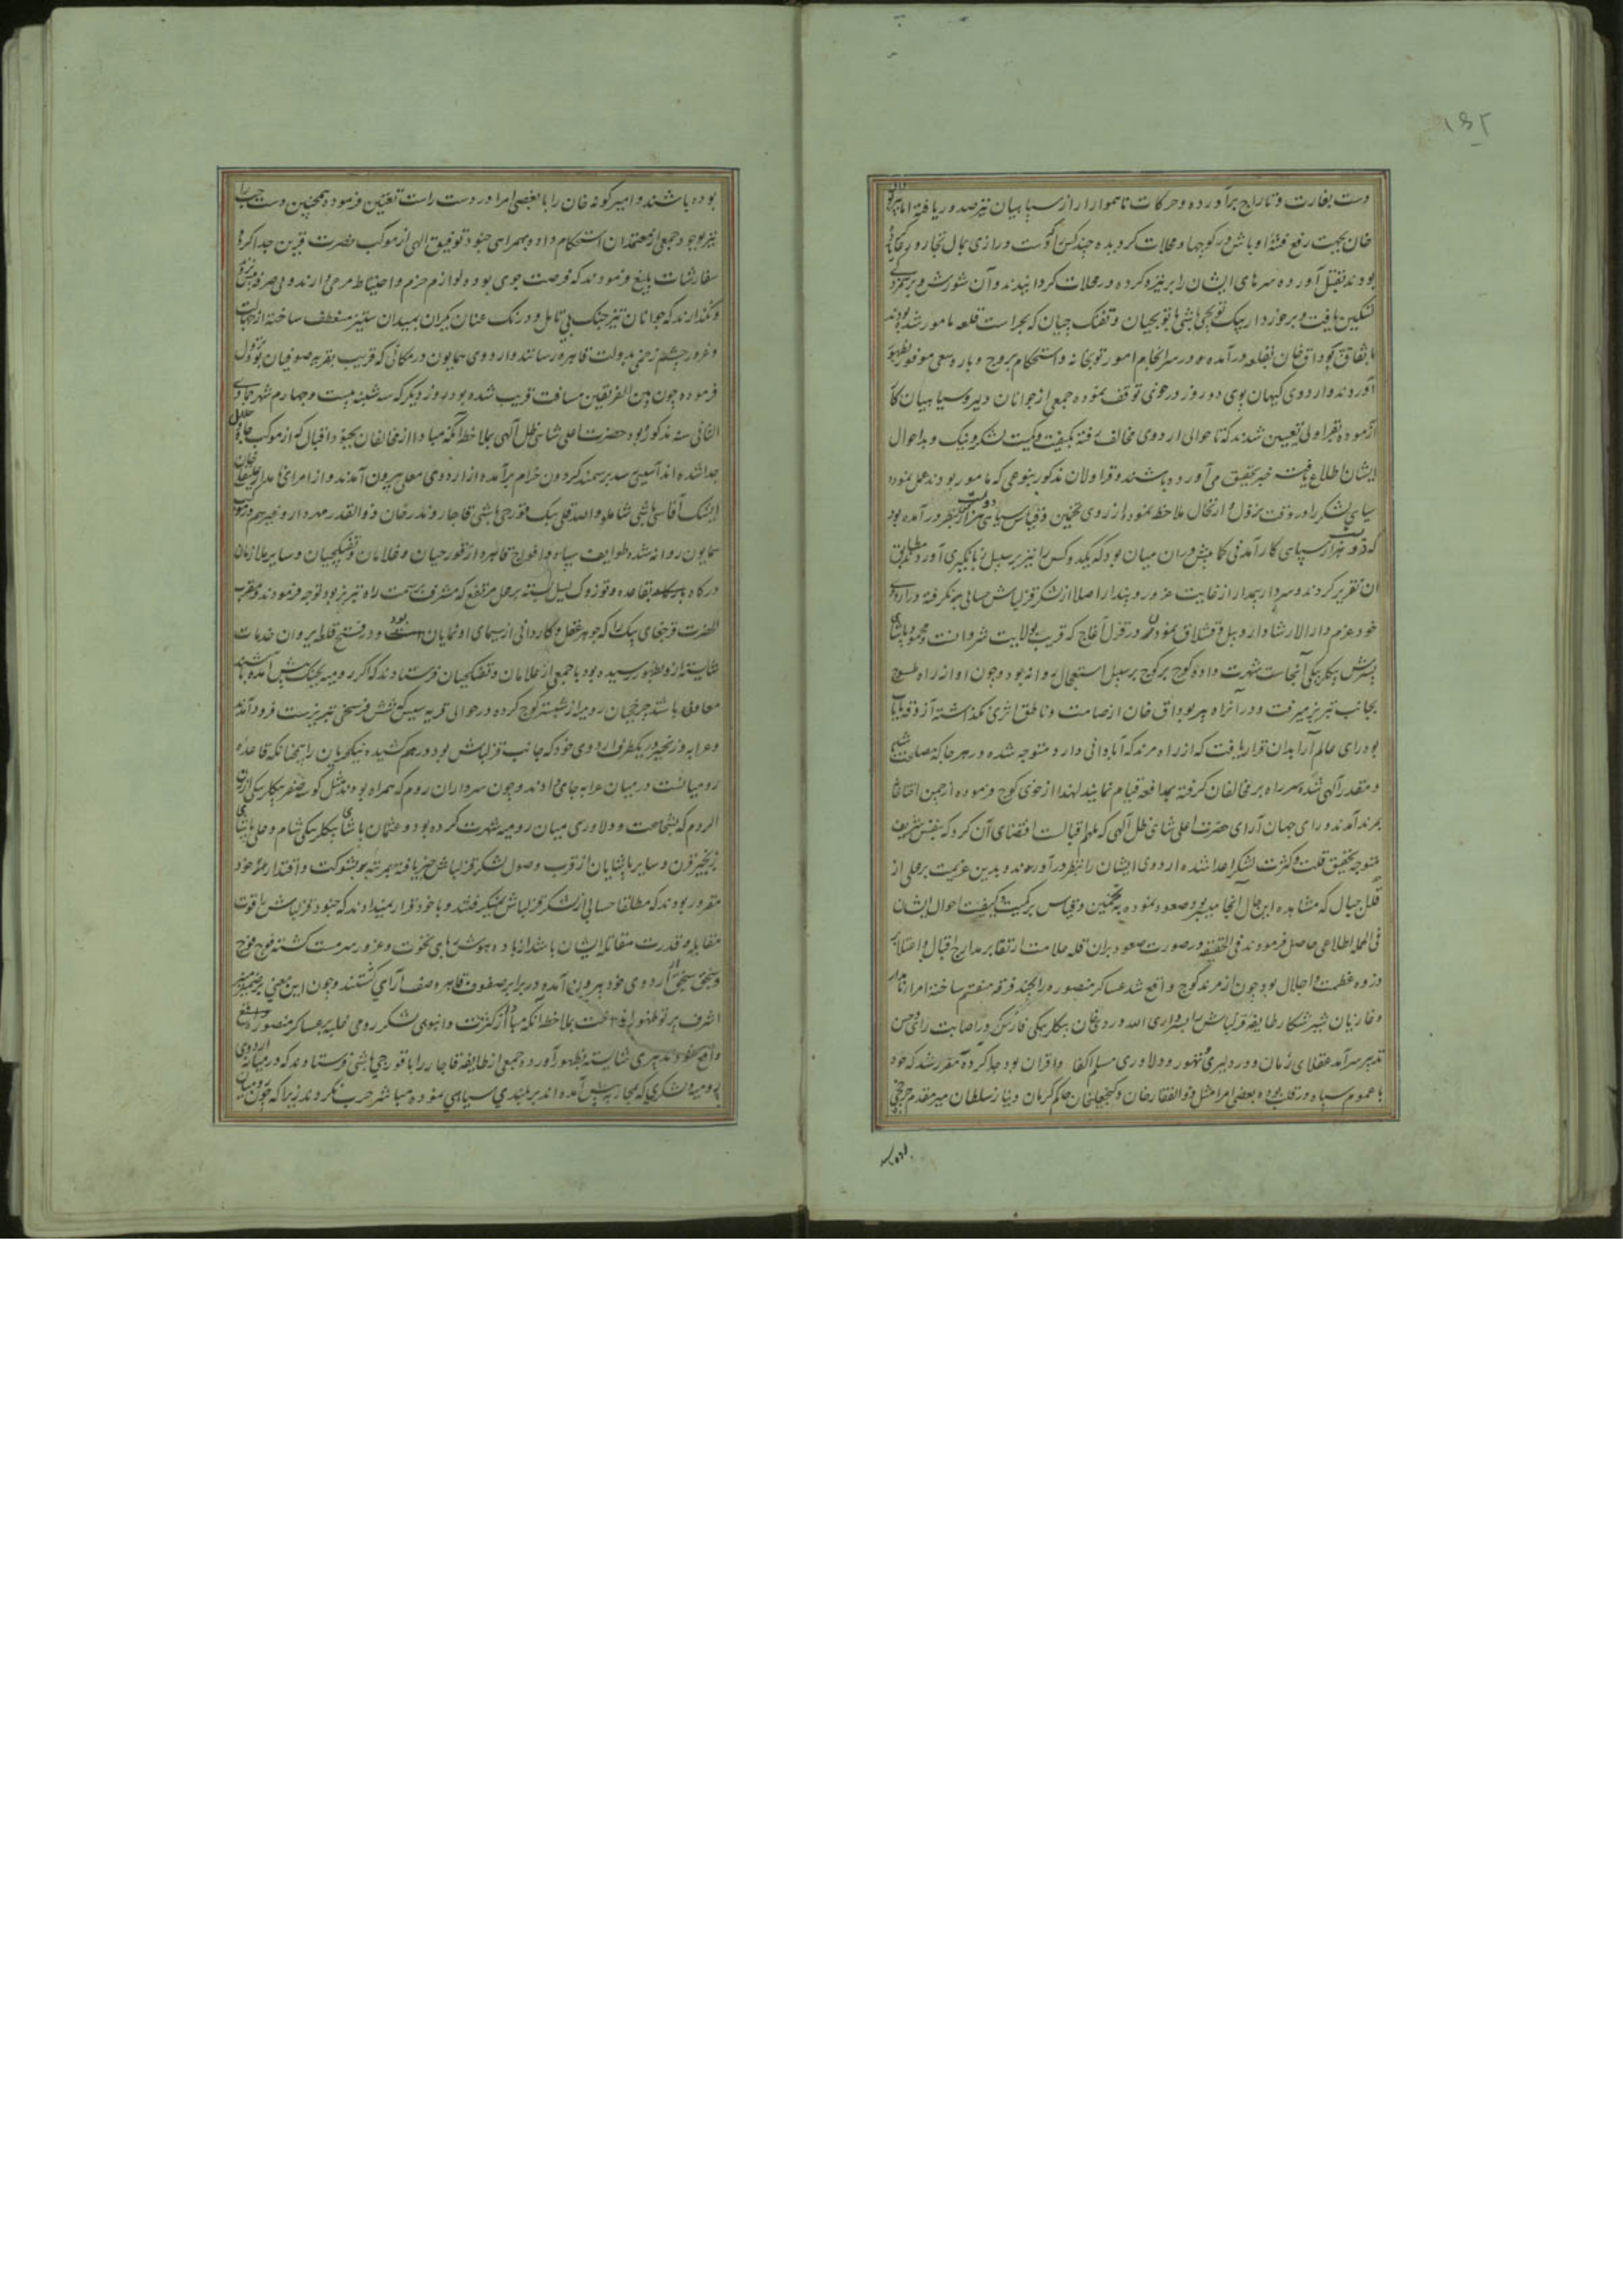 ۱۵۲
دست بغارت و تاراج برآورده و حرکات ناهموار از سپاهیان نیز صدور یافته اما پیربوداق
خان بجهت رفع فتنه اوباش در کوچها و محلات گردیده چند کس را که دست درازی بمال تجار و رعایا کرده
بودند بقتل آورده سرهای ایشان را بر نیزه کرده در محلات گردانیدند و آن شورش و برهمزدگی
تسکین یافت و برخوردار بیک توپچی باشی با توپچیان و تفنگ چیان که بحراست قلعه مامور شده بودند
باتفاق بوداق خان بقلعه درآمده در سرانجام امور توپخانه و استحکام بروج و باره سعی موفور بظهور
آوردند و اردوی کیهان پوی دو روز در خوی توقف نموده جمعی از جوانان دلیر و سپاهیان کار
آزموده بقراولی تعیین شدند که تا حوالی اردوی مخالف رفته بکیفیت و کمیت لشکر و نیک و بد احوال
ایشان اطلاع یافته خبر بتحقیق می آورده باشند و قراولان مذکور بنوعی که مامور بودند عمل نموده
سیاهی لشکر را در وقت نزول و ارتحال ملاحظه نموده از روی تخمین و قیاس سیاهی دویست هزار کس بنظر درآمده بود
که هزار سپاهی کارآمدنی کمابیش در آن میان بود که یکدو کس را نیز بر سبیل زبانگیری آورده مطابق
آن تقریر کردند و سردار بیمدار از غایت غرور و پندار اصلا از لشکر قزلباش حسابی برنگرفته در اردوی
خود عزم دارالارشاد اردبیل و قشلاق نمودن در قزل آغاج که قریب بولایت شروانست و محمود پاشای
پسرش بیکلربیکی آنجاست شهرت داده کوچ بر کوچ بر سبیل استعجال روانه بود و چون او از راه طسوج
بجانب تبریز میرفت و در آن راه پیر بوداق خان از صامت و ناطق اثری نگذاشته آزوقه نایاب
بود رای عالم آرا بدان قرار یافت که از راه مرند که آبادانی دارد متوجه شده در هر جا که مصلحت باشد
و مقدر الهی شده سر راه بر مخالفان گرفته بمدافعه قیام نمایند لهذا از خوی کوچ فرموده از چمن التاخا
بمرند آمدند و رای جهان آرای حضرت اعلی شاهی ظل الهی که ملهم اقبالست اقتضای آن کرد که بنفس شریف
متوجه تحقیق قلت و کثرت لشکر اعدا شده اردوی ایشان را بنظر درآورند و بدین عزیمت بر محلی از
قلل جبال که مشاهده این حال از آنجا میسر بود صعود نموده به تخمین و قیاس بر کمیت و کیفیت احوال ایشان
فی الجمله اطلاعی حاصل فرمودند فی الحقیقه در صورت صعود بر آن قله علامت ارتقا بر مدارج اقبال و اعتلا بر
ذروه عظمت و اجلال بود چون از مرند کوچ واقع شد عساکر منصوره را بچند فرقه منقسم ساخته امرا نامدار
و غازیان شیر شکار طایفه قزلباش را بسرداری الله وردی خان بیکلربیکی فارس که در اصابت رای و حسن
تدبیر سرآمد عقلای زمان و در دلیری و تهور و دلاوری مسلم اکفا و اقران بود جدا کرده مقرر شد که خود
با عموم سپاه در قلب بوده بعضی امرا مثل ذوالفقار خان و گنجعلیخان حاکم کرمان و بیان سلطان میر مقدم
بوده باشند
بوده باشند و امیر گونه خان را با بعضی امرا در دست راست تعیین فرموده همچنین دست چپ را
نیز بوجود جمعی از معتمدان استحکام داده بهمراهی جنود توفیق الهی از موکب نصرت قرین جدا کرده
سفارشات بلیغ فرمودند که فرصت جوی بوده لوازم حزم و احتیاط مرعی دارند و بی صرفه
و نگذارند که جوانان تیز جنگ بی تامل و درنگ عنان یکران بمیدان ستیز منعطف ساخته
و غرور چشم زخمی بدولت قاهره رسانند و اردوی همایون در مکانی که قریب بقریه صوفیان بود نزول
فرموده چون بین الفریقین مسافت قریب شده بود روز دیگر که سه شنبه بیست و چهارم شهر جمادی
الثانی سنه مذکور بود حضرت اعلی شاهی ظل الهی بملاحظه آنکه مبادا از مخالفان بجنود اقبال که از موکب جلال
جدا شده اند آسیبی رسد بر سمند گردون خرام برآمده از اردوی معلی بیرون آمدند و از امرای نامدار
ایشک آقاسی باشی شاملو و الله قلی بیک قورچی باشی قاجار و ندر خان ذوالقدر مهردار و غیرهم در موکب
همایون روانه شدند و طوایف سپاه و افواج قاهره از قورچیان و غلامان و تفنگچیان و سایر ملازمان
درگاه بقاعده و توزوک یسل بسته بر محل مرتفع که مشرف بر سمت راه تبریز بود توجه فرمودند و مقرب
الحضرت قرچغای بیک را که جوهر عقل و کاردانی از سیمای او نمایان بود و در فتح قلاع ایروان خدمات
شایسته ازو بظهور رسیده بود با جمعی از غلامان و تفنگچیان فرستادند که اگر رومیه بجنگ پیش آمده باشند
معاون باشد چرخچیان رومیه از شبستر کوچ کرده در حوالی قریه سیس که شش فرسخی تبریز است فرود آمدند
و عرابه و زنجیر در یکطرف اردوی خود که جانب قزلباش بود در هم کشیده ینکچریان را چنانکه قاعده
رومیانست در میان عرابه جای دادند و چون سرداران روم که همراه بودند مثل کوسه صفر بیکلربیکی ارزن
الروم که بشجاعت و دلاوری میان رومیه شهرت کرده بود و عثمان پاشای بیکلربیکی شام و علی پاشای
و سایر پاشایان از قرب وصول لشکر قزلباش خبر یافته بمرتبه بشوکت و اقتدار خود
مغرور بودند که مطلقا حسابی از لشکر قزلباش نمیگرفتند و با خود قرار میدادند که جنود قزلباش را قوت
مقابله و قدرت مقاتله ایشان باشد از باده هوش ربای نخوت و غرور سرمست گشته فوج فوج
و سنجق سنجق از اردوی خود بیرون آمده در برابر صفوف قاهره صف آرای گشتند و چون این معنی بر ضمیر منیر
اشرف پرتو ظهور انداخت بملاحظه آنکه مبادا از کثرت و انبوهی لشکر رومی غلبه بر عساکر منصوره
واقع شود تدبیری شایسته بظهور آورده جمعی از طایفه قاجار را با قورچی باشی فرستادند که در میانه اردوی
رومیه و لشکری که بمحاربه پیش آمده اند بر بلندی سیاهی نموده مباشر حرب نگردند زیرا که چون